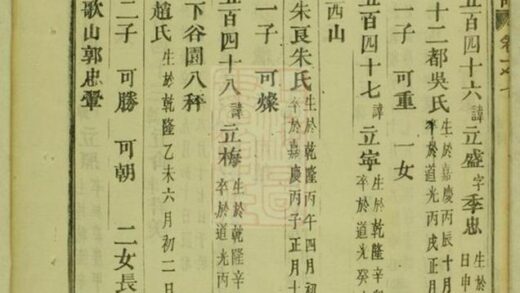 五百四十六 諱立盛 字季忠 生於
日申
十二都吳氏 生於嘉慶丙辰十月
卒於道光丙戌正月
一子 可重 一女
五百四十七 諱立寕 生於乾隆
卒於道光癸
西山
朱良朱氏 生於乾隆丙午四月初
卒於嘉慶丙子正月十
一子 可燦
五百四十八 諱立梅 生於乾隆辛
卒於道光丙
下谷園八秤
趙氏 生於乾隆乙未六月初二日
二子 可勝 可朝 二女長
歌山郭忠暈